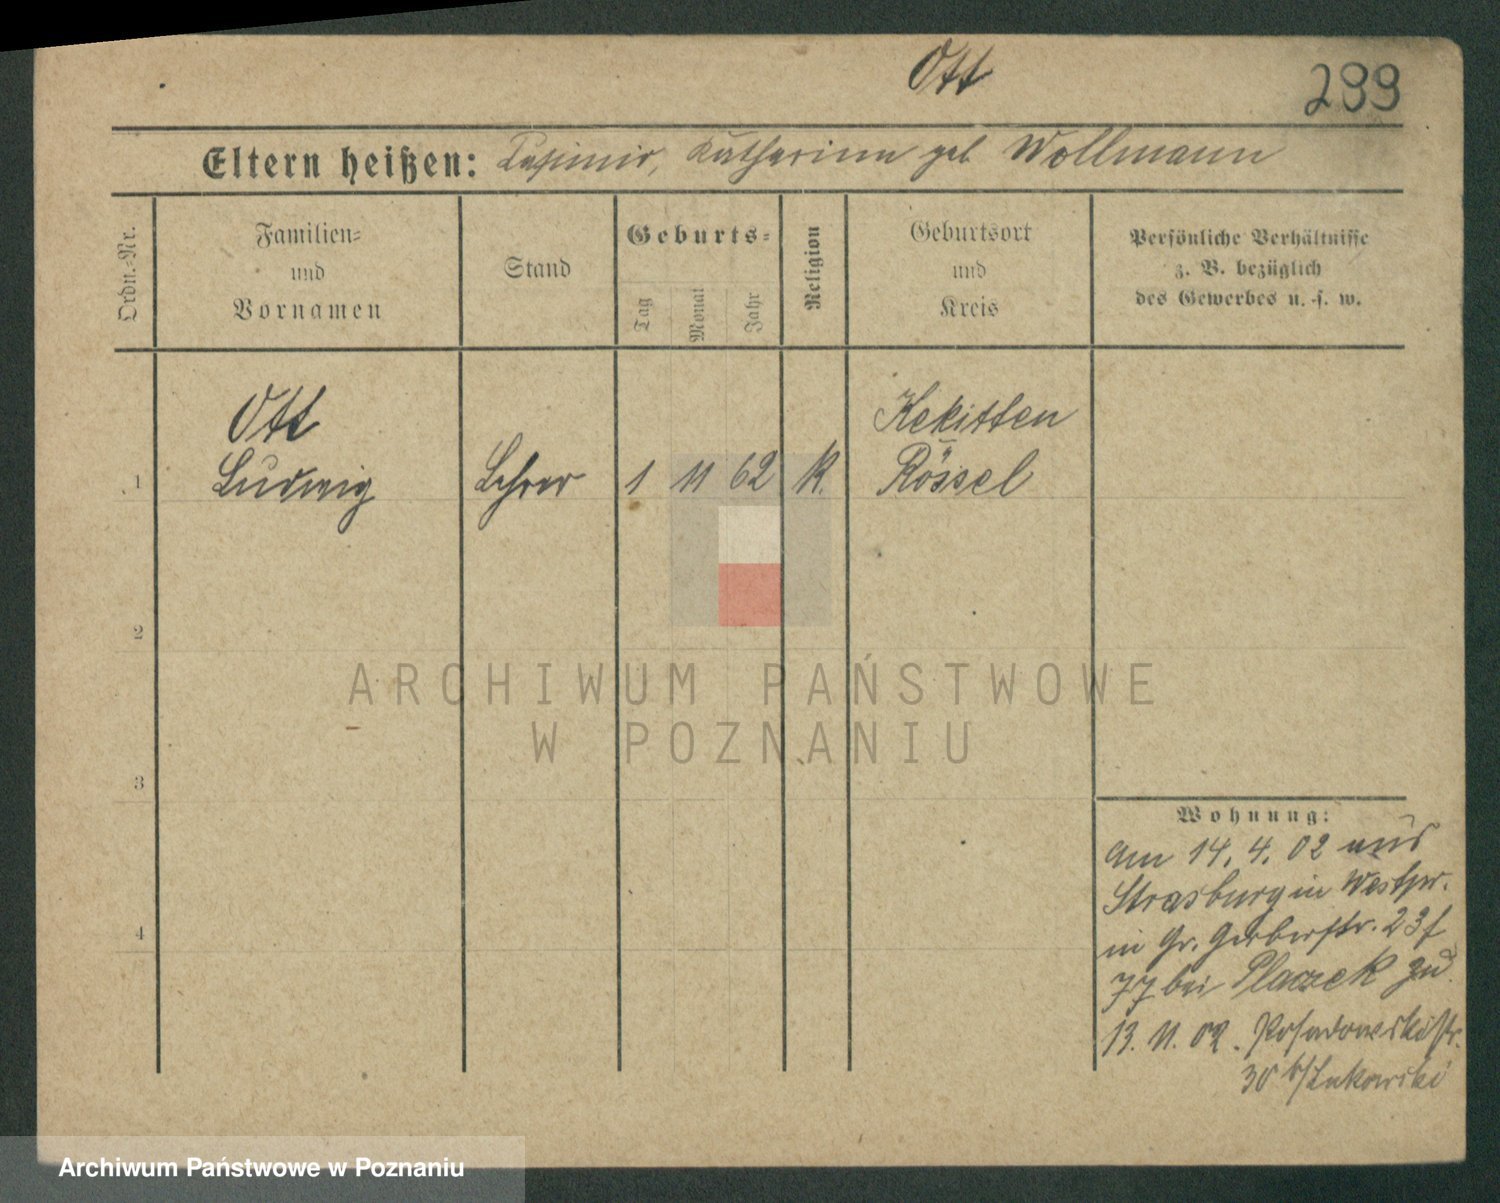 Ott
299
Eltern heißen: Casimir, Katharina geb Wollmann
Ordn.-Nr.
Familien-
und
Vornamen
Stand
Geburts-
Tag
Monat
Jahr
Religion
Geburtsort
und
Kreis
Persönliche Verhältnisse
z. B. bezüglich
des Gewerbes u. s. w.
Ott
1 Ludwig Lehrer 1 11 62 K. Kekitten
Rössel
2
3
4
ARCHIWUM PAŃSTWOWE
W POZNANIU
Wohnung:
am 14. 4. 02 aus
Strasburg in Westpr.
in Gr. Gerberstr. 23 f
77 bei Placzek zu
13. 11. 02. Posadowskistr.
30 b/Lukowski
Archiwum Państwowe w Poznaniu